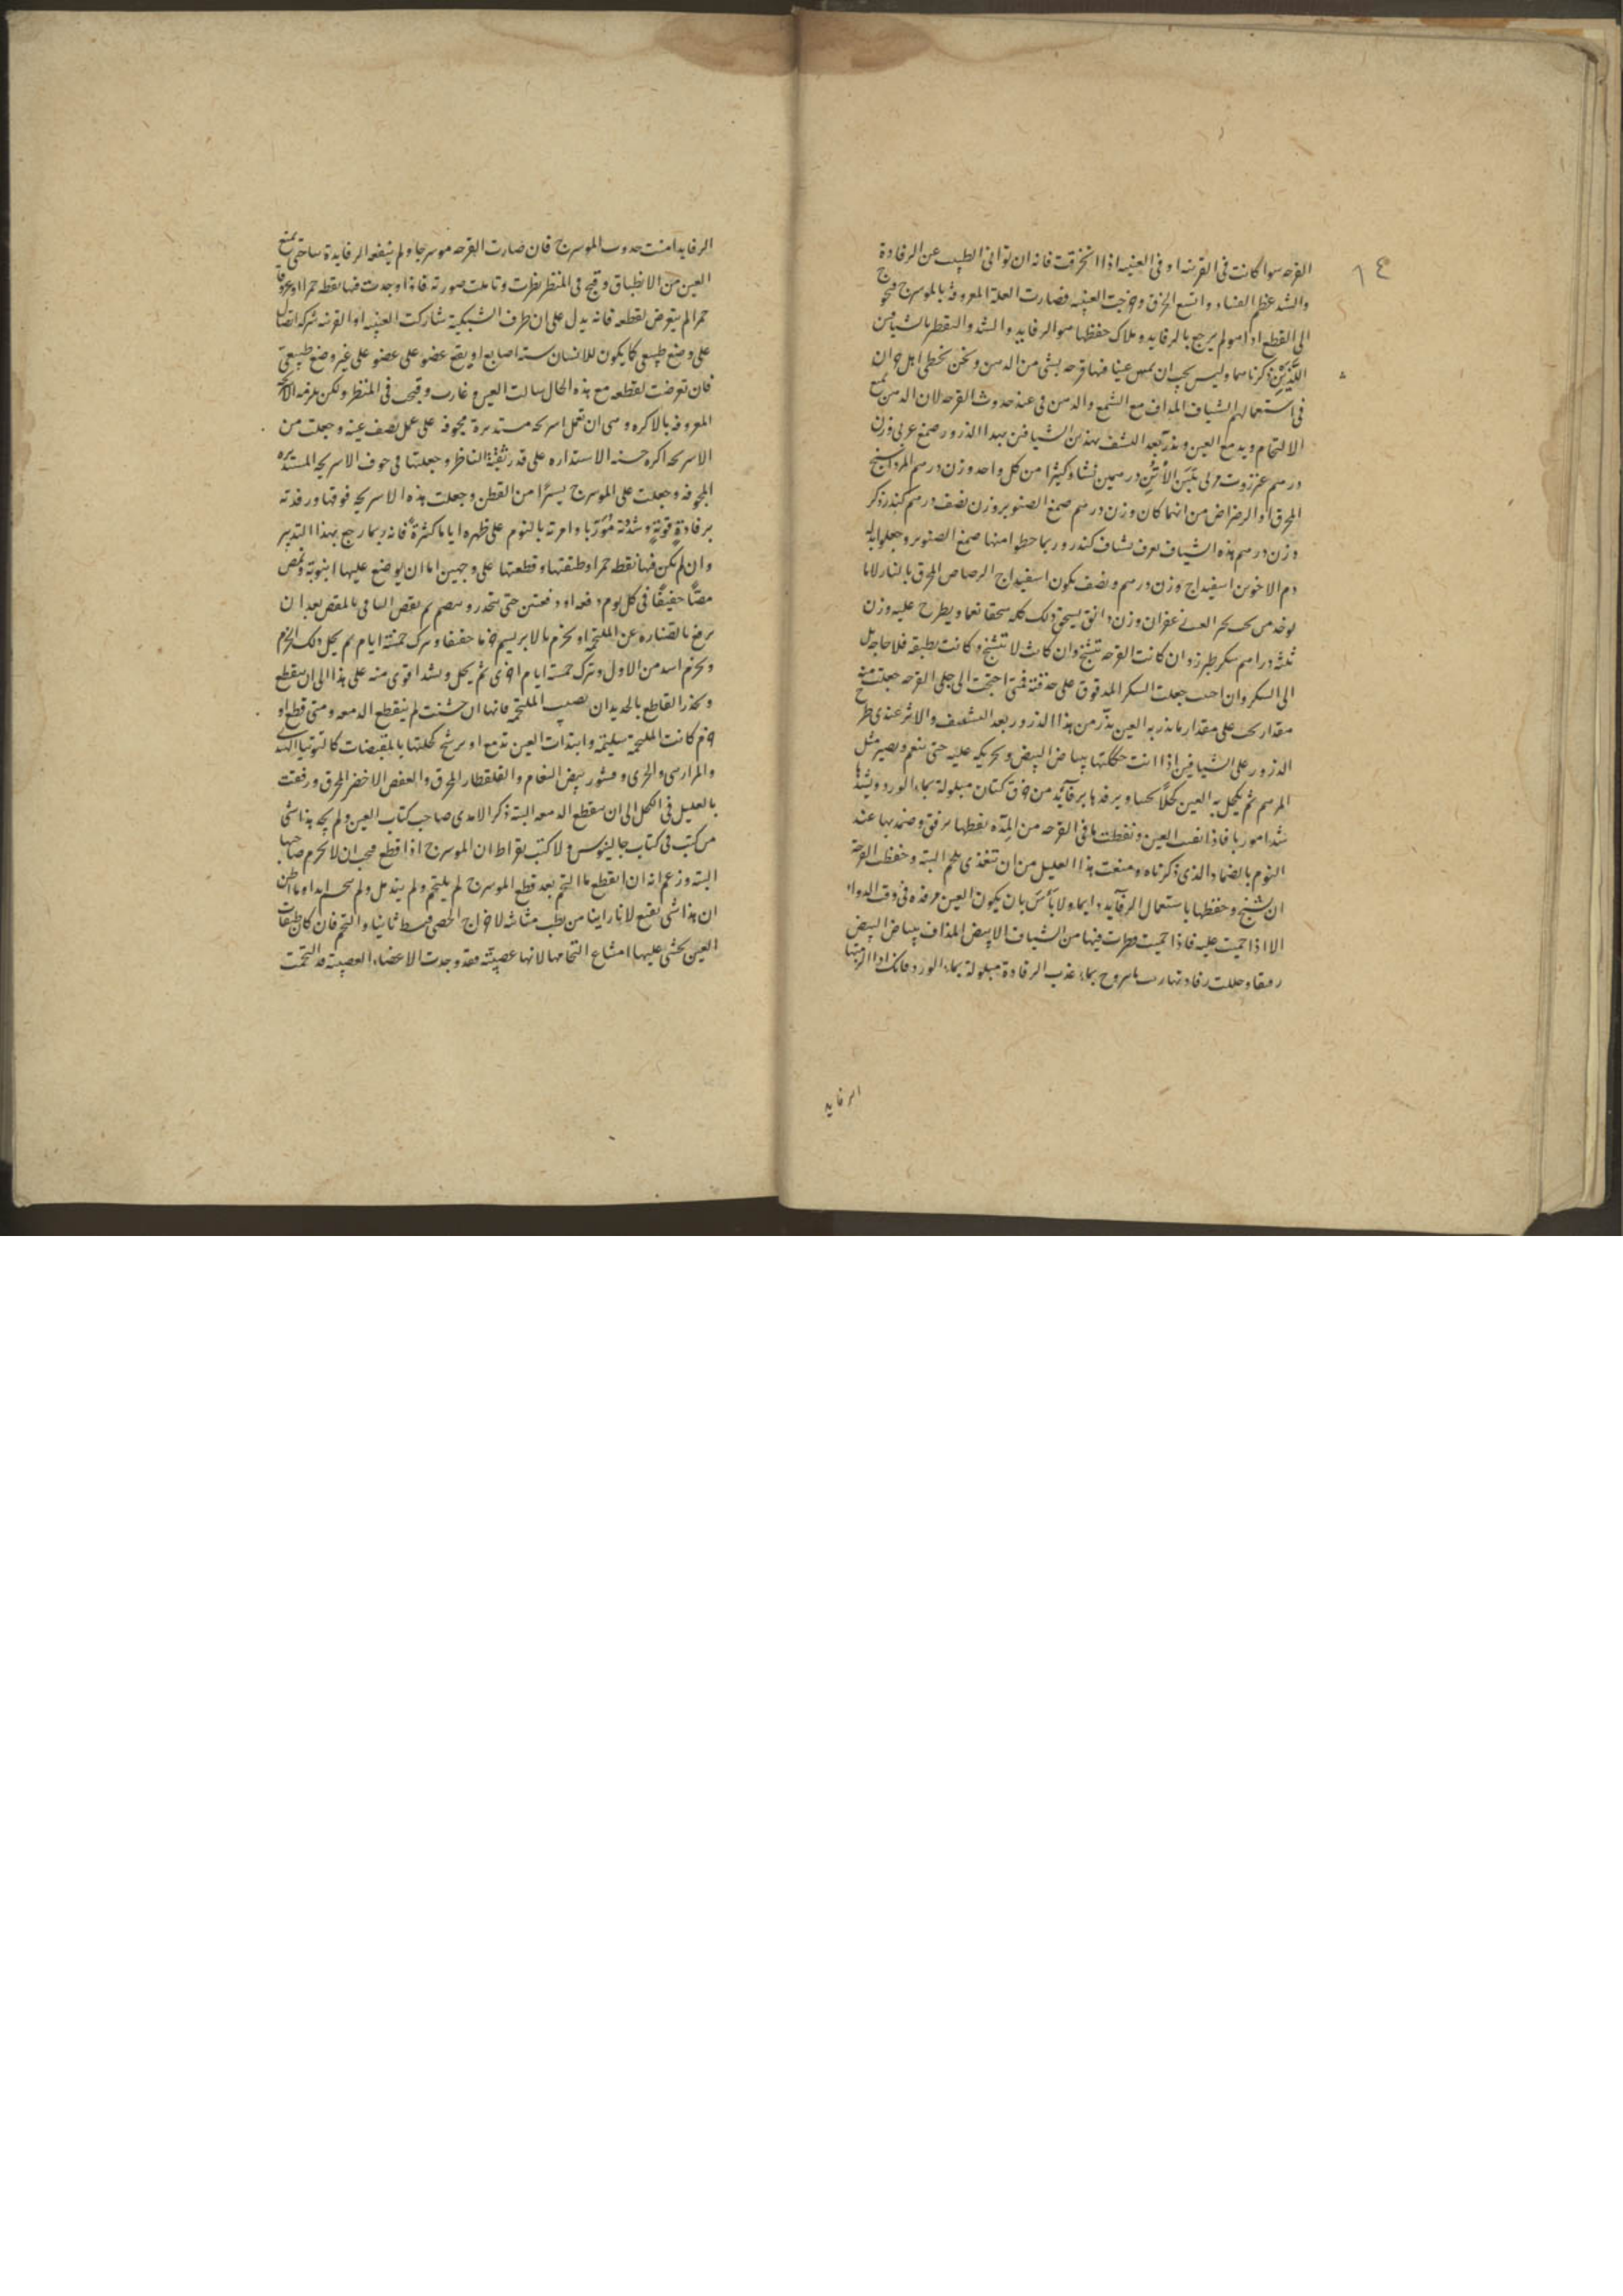 ١٤
القرحه سوا كانت فى القرنيه او فى العنبيه اذا انخرقت فانه ان توانى الطبيب عن الرفادة
والشد عظم الفساد واتسع الخرق وخرجت العنبيه فصارت العلة المعروفة بالموسرج
الى القطع اذا هو لم يرجع بالرفايد وملاك حفظها هو الرفايد والشد والتقطير بالشيافين
اللذين ذكرناهما وليس يجب ان يمس عينا فيها قرحه بشى من الدهن ونحن نخطى اهل
فى استعمالهم الشياف المداف مع الشمع والدهن فى عند حدوث القرحه لان الدهن يمنع
الالتحام ويدمع العين ويذر بعد النشف بهذين الشيافين بهذا الذرور صمغ عربى وزن
درهم عنزروت مربى بلبن الأتن درهمين نشا وكثيرا من كل واحد وزن درهم المرداسنج
المحرق او الرضراض من ايهما كان وزن درهم صمغ الصنوبر وزن نصف درهم كندر ذكر
وزن درهم هذه الشياف يعرف بشياف كندر وربما حطوا منها صمغ الصنوبر وجعلوا بدله
دم الاخوين اسفيداج وزن درهم ونصف يكون اسفيداج الرصاص المحرق بالنار لا ما
يوخذ من زعفران وزن دانق يسحق ذلك كله سحقا نعما ويطرح عليه وزن
ثلثه دراهم سكر طبرزد ان كانت القرحه تتشنج وان كانت لا تتشنج وكانت نظيفه فلا حاجه بك
الى السكر وان احببت جعلت السكر المدقوق على حدته فمتى احتجت الى جلى القرحه جعلت منه
مقدار على مقدار ما تذر به العين يذر من هذا الذرور بعد التشفف والاثر عندى
الذرور على الشيافين اذا انت حككتها ببياض البيض وتحريكه عليه حتى ينعم ويصير مثل
المرهم ثم يكحل به العين كحلا ويرفدها برفائد من خرق كتان مبلولة بماء الورد ويشدها
شدا موربا فاذا نقيت العين ونقطت ما فى القرحه من المدة بقطها برفق وضمدتها عند
النوم بالضماد الذى ذكرناه ومنعت هذا العليل من ان تغذى بلحم البتة وحفظت القرحة
ان تشنج وحفظها باستعمال الرفآيد دايما ولا بأس بان يكون العين مرفدة فى وقت الدواء
الا اذا حميت عليه فاذا حميت قطرت فيها من الشياف الابيض المذاف ببياض البيض
رمقا وحللت رفادتها بماء عذب الرفادة مبلولة بماء الورد فانك اذا الزمتها
الرفايد
الرفايد امنت حدوث الموسرج فان صارت القرحه موسرجا ولم ينفعه الرفايدة ساحتى يمنع
العين من الانطباق وقبح فى المنظر نظرت وتاملت صورته فاذا وجدت فيها نقطه حمرا او عروقا
حمرا لم يتعرض لقطعه فانه يدل على ان طرف الشبكية شاركت العنبيه او القرنيه شركه اتصال
على وضع طبيعى كما يكون للانسان سته اصابع او يقع عضو على عضو على غير وضع طبيعى
فان تعرضت لقطعه مع هذه الحال سالت العين وغارت وقبحت فى المنظر ولكن
المعروفه بالاكره وهى ان تعمل اسربحه مستديرة مجوفه على عمل نصف عينه وجعلت من
الاسربحه اكره حسنه الاستداره على قدر ثقبة الناظر وجعلتها فى جوف الاسربحه المستديره
المجوفه وجعلت على الموسرج يسيرًا من القطن وجعلت هذه الاسربحه فوقها ورفدته
برفادةٍ قويّةٍ وشددته مُوَرّبا وامرته بالنوم على ظهره اياما كثيرةً فانه ربما رجع بهذا التدبير
وان لم يكن فيها نقطه حمرا وطنقتها وقطعتها على وجهين اما ان يوضع عليها انبوبة وتمص
مصًّا خفيفًا فى كل يوم دفعه او دفعتين حتى ينحدر ثم يقص الباقى بالمقص بعد ان
يرفع بالصناره عن الملتحمه او يخزم بالابريسم خزما خفيفا ويترك خمسة ايام ثم يحل ذلك الخزم
ويخزم اشد من الاول ويترك خمسة ايام اخرى ثم يحل ويشد اقوى منه على هذا الى ان ينقطع
ويحذر القاطع بالحديد ان يصيب الملتحمه فانها ان خشنت لم ينقطع الدمعه ومتى قطع او
خزم كانت الملتحمة سليمة وابتدات العين تدمع او يرشح كحلتها بالمقبضات كالتوتيا الهندى
والمرازبى والحرى وقشور بيض النعام والقلقطار المحرق والعفص الاخضر المحرق ورفقت
بالعليل فى الكحل الى ان ينقطع الدمعه البتة ذكر الامدى صاحب كتاب العين ولم يجد هذا شى
من كتب فى كتاب جالينوس ولا كتب بقراط ان الموسرج اذا قطع فيجب ان لا يخزم صاحبها
البته وزعم انه ان انقطع ما التحم بعد قطع الموسرج لم يلتحم ولم يندمل ولم ابدا وما اظن
ان هذا شى يقنع لانا راينا من بطب مثانته لاخراج الحصى فبط ثانيا والتحم فان كان طبقات
العين يخشى عليها امتناع التحامها لانها عصبية فقد وجدت الاعضاء العصبية قد التحمت